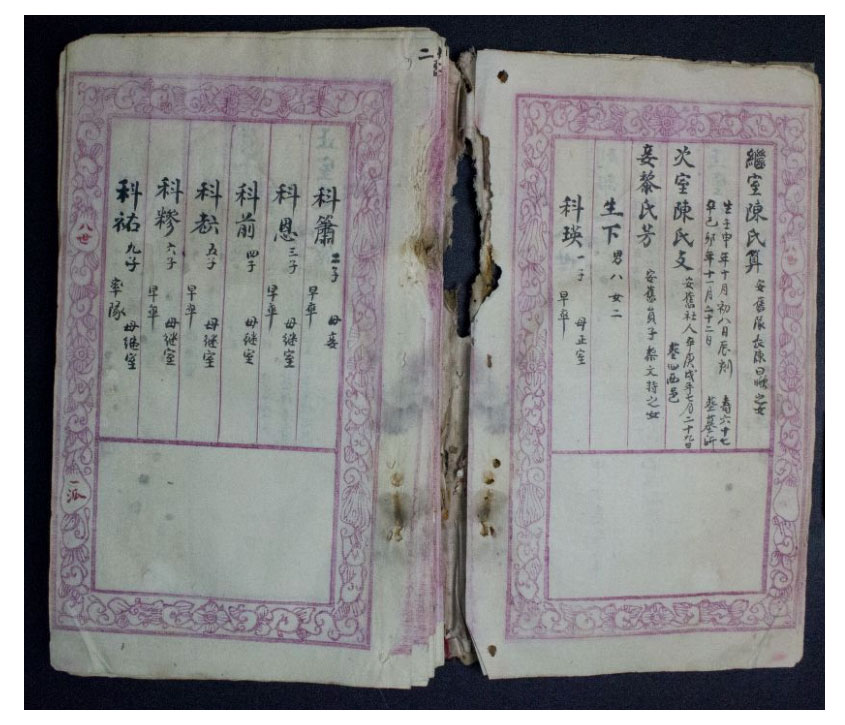 繼室陳氏算 安舊隊長陳曰
之女
生壬申年十月初八日辰刻 壽六十七
卒己卯年十一月二十二日 葬墓
次室陳氏
安舊社人卒庚戌年七月二十九日
葬西邑
妾黎氏芳 安舊員子黎文持之女
生下 男八 女二
科瑛 一子 早卒 母正室
二
科簫 二子 早卒 母妾
科恩 三子 早卒 母継室
科前 四子 早卒 母継室
科 五子 早卒 母継室
科 六子 早卒 母継室
科祐 九子 率隊 母継室
八世
一派